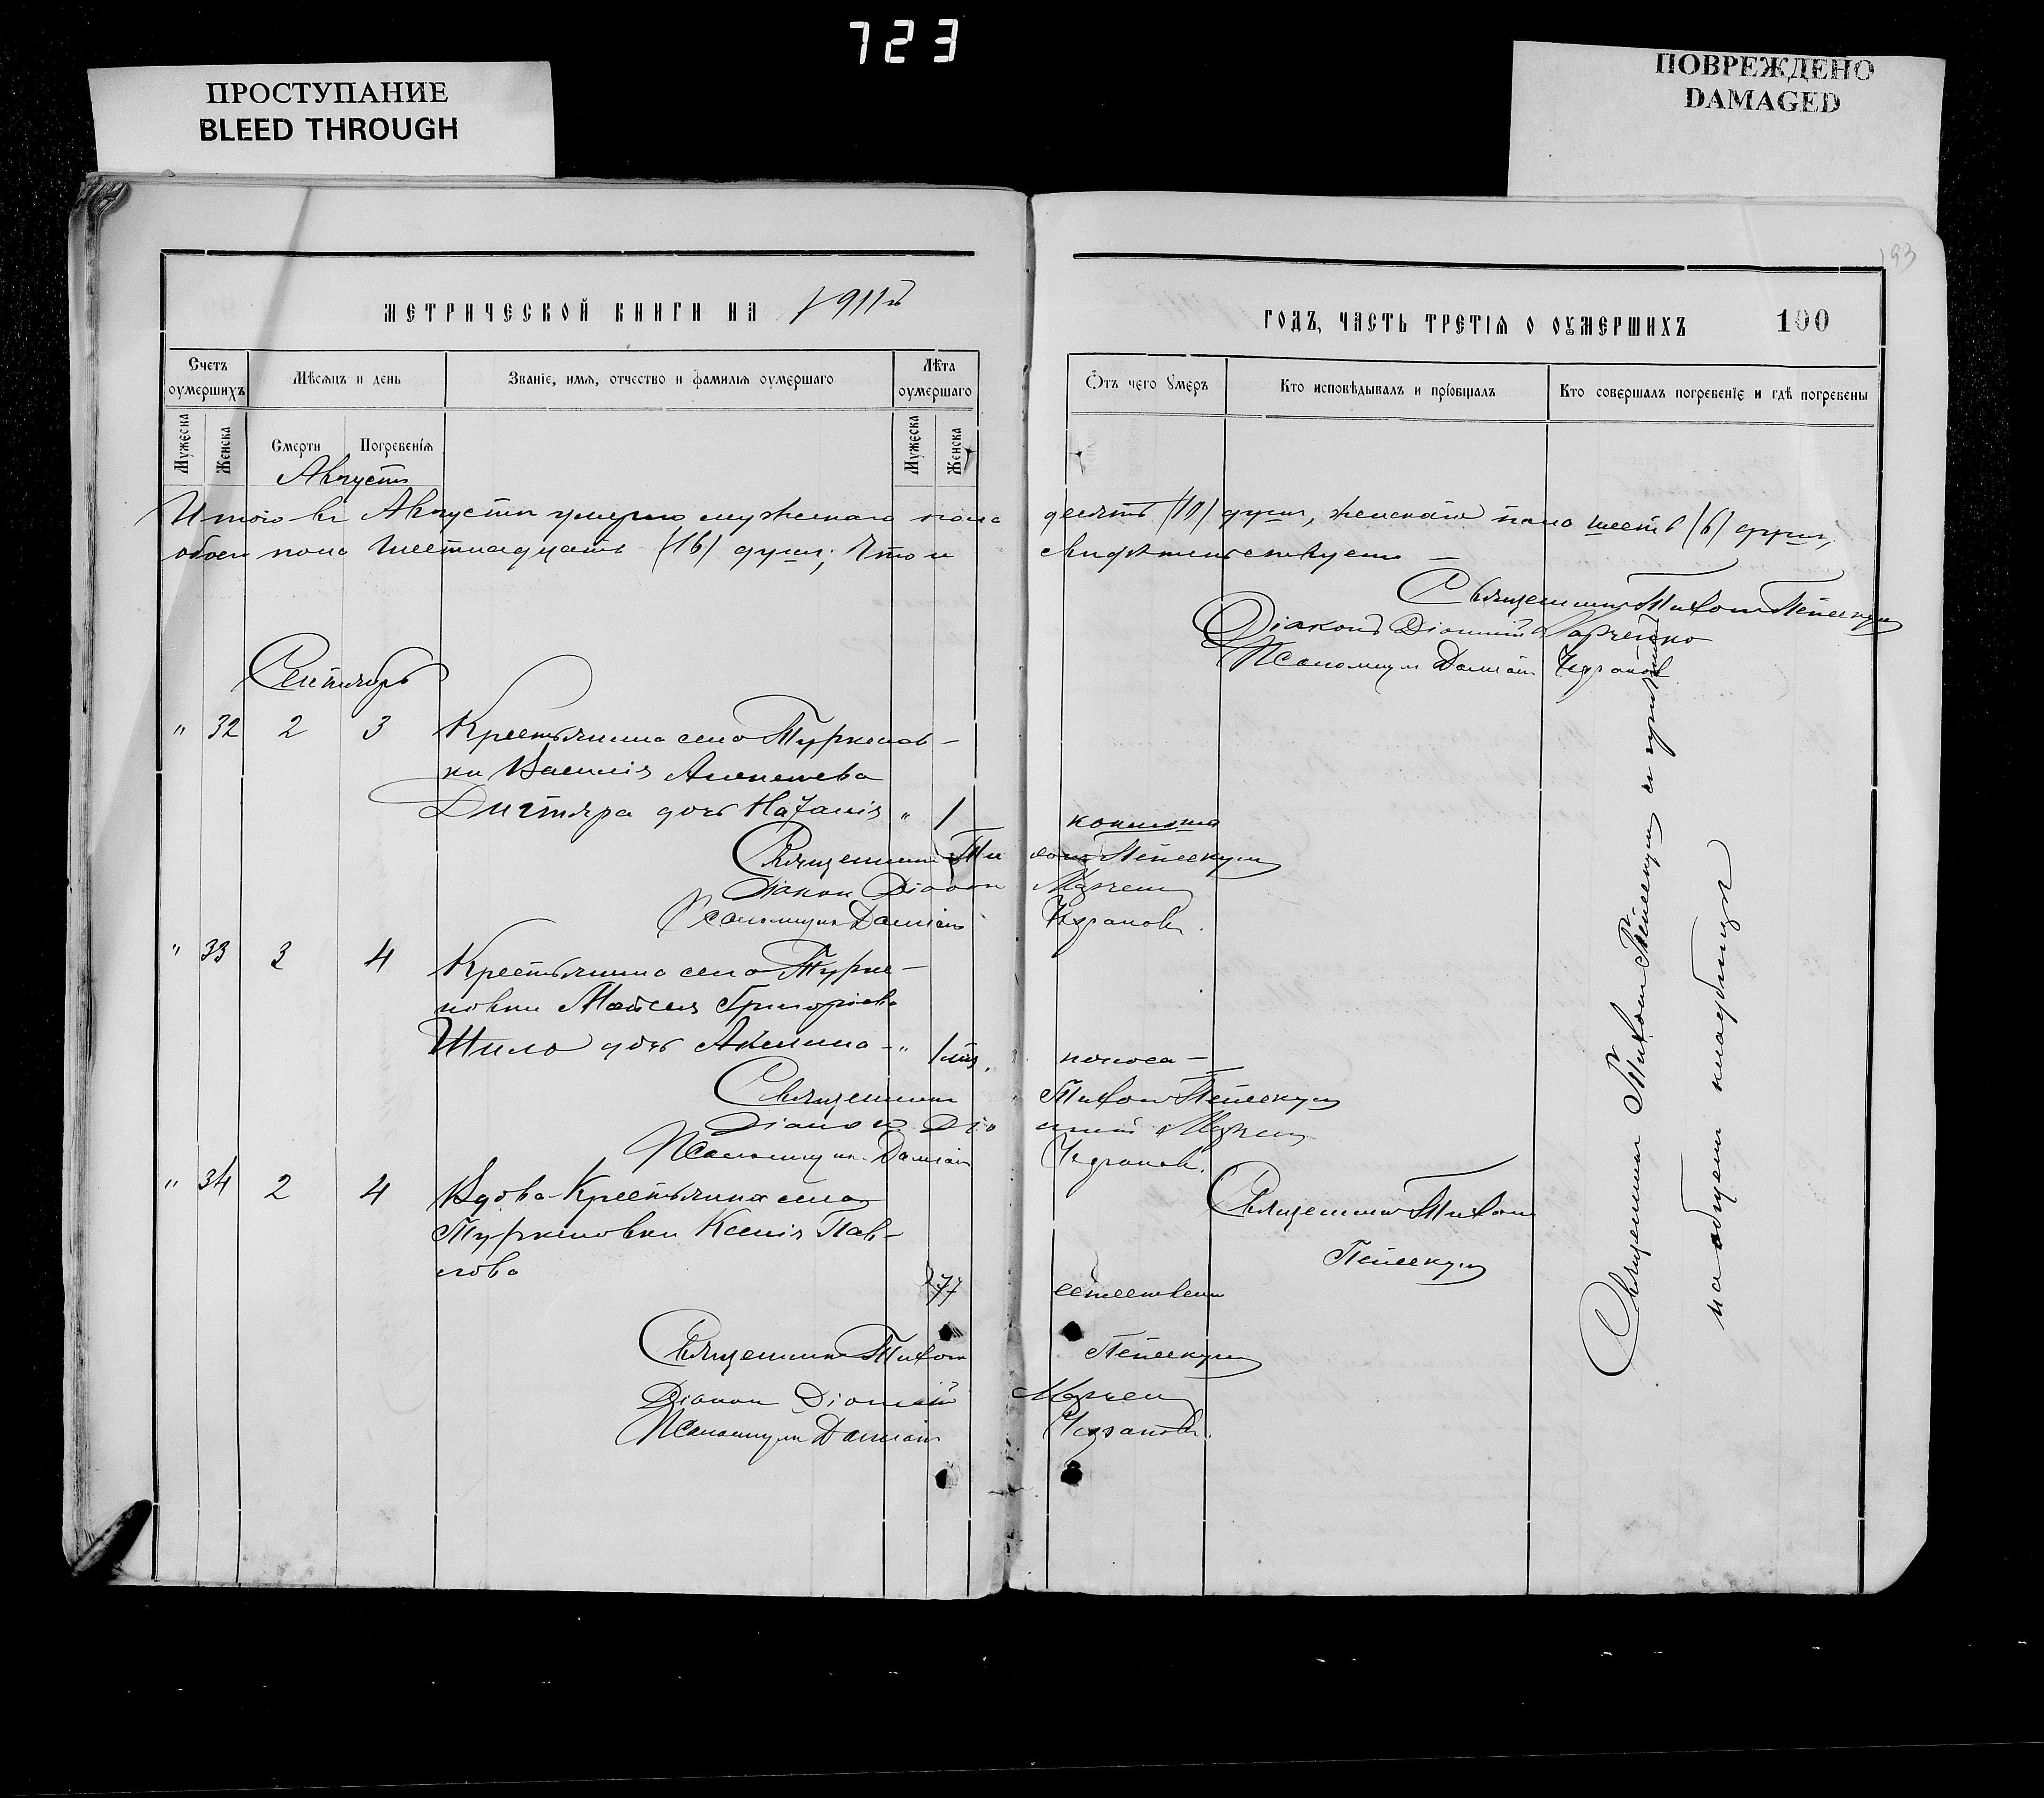 723
ПРОСТУПАНИЕ
BLEED THROUGH
ПОВРЕЖДЕНО
DAMAGED
193
МЕТРИЧЕСКОЙ КНИГИ НА 1911й
ГОДЪ, ЧАСТЬ ТРЕТІЯ О ОУМЕРШИХЪ
100
Счетъ оумершихъ
Мѣсяцъ и день
Званіе, имя, отчество и фамилія оумершаго
Лѣта оумершаго
Отъ чего умеръ
Кто исповѣдывалъ и пріобщалъ
Кто совершалъ погребеніе и гдѣ погребены
Мужеска
Женска
Смерти
Погребенія
Мужеска
Женска
Августъ
Итого въ Августѣ умерло мужескаго пола десять (10) душъ, женскаго пола шесть (6) душъ,
обоего пола шестнадцать (16) душъ; Что и свидѣтельствуемъ —
Священникъ Тихонъ
Діаконъ Діонисій
Псаломщикъ Даміанъ
Сентябрь
" 32 2 3 Крестьянина села Туркенов-
ки Василія Алексѣева
дочь " 1
Священникъ Тихонъ
Діаконъ
Псаломщикъ Даміанъ
" 33 3 4 Крестьянина села Турке-
новки Моисея Григоріева
Шило дочь Акилина - " 1 поноса —
Священникъ Тихонъ
Діаконъ Діонисій
Псаломщикъ Даміанъ
" 34 2 4 Вдова Крестьянина села
Туркеновки Ксенія Пав-
лова
77 естествен
Священникъ Тихонъ
Священникъ Тихонъ
Діаконъ Діонисій
Псаломщикъ Даміанъ
Священникъ Тихонъ
на общемъ кладбищѣ